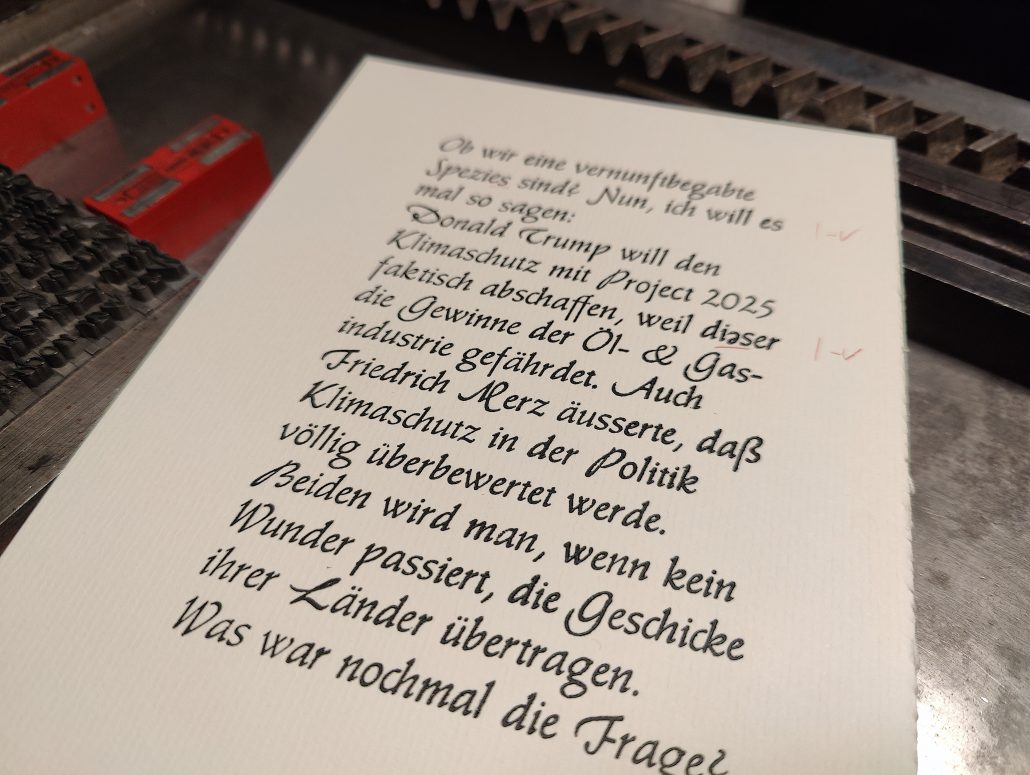 Ob wir eine vernunftbegabte
Spezies sind? Nun, ich will es
mal so sagen:
Donald Trump will den
Klimaschutz mit Project 2025
faktisch abschaffen, weil dieser
die Gewinne der Öl- & Gas-
industrie gefährdet. Auch
Friedrich Merz äusserte, daß
Klimaschutz in der Politik
völlig überbewertet werde.
Beiden wird man, wenn kein
Wunder passiert, die Geschicke
ihrer Länder übertragen.
Was war nochmal die Frage?